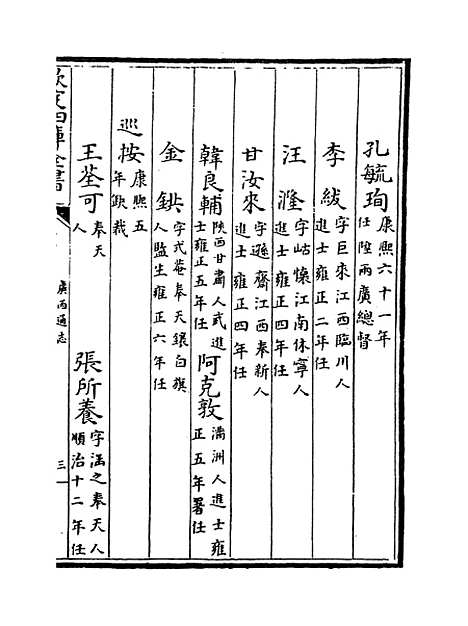 孔毓珣 康熙六十一年任陞兩廣總督
李紱 字巨來江西臨川人進士雍正二年任
汪漋 字岵懷江南休寧人進士雍正四年任
甘汝來 字遜齋江西奉新人進士雍正四年任
韓良輔 陜西甘肅人武進士雍正五年任 阿克敦 滿洲人進士雍正五年署任
金鉷 字式菴奉天鑲白旗人監生雍正六年任
巡按 康熙五年缺裁
王荃可 奉天人 張所養 字涵之奉天人順治十二年任
欽定四庫全書
廣西通志
三